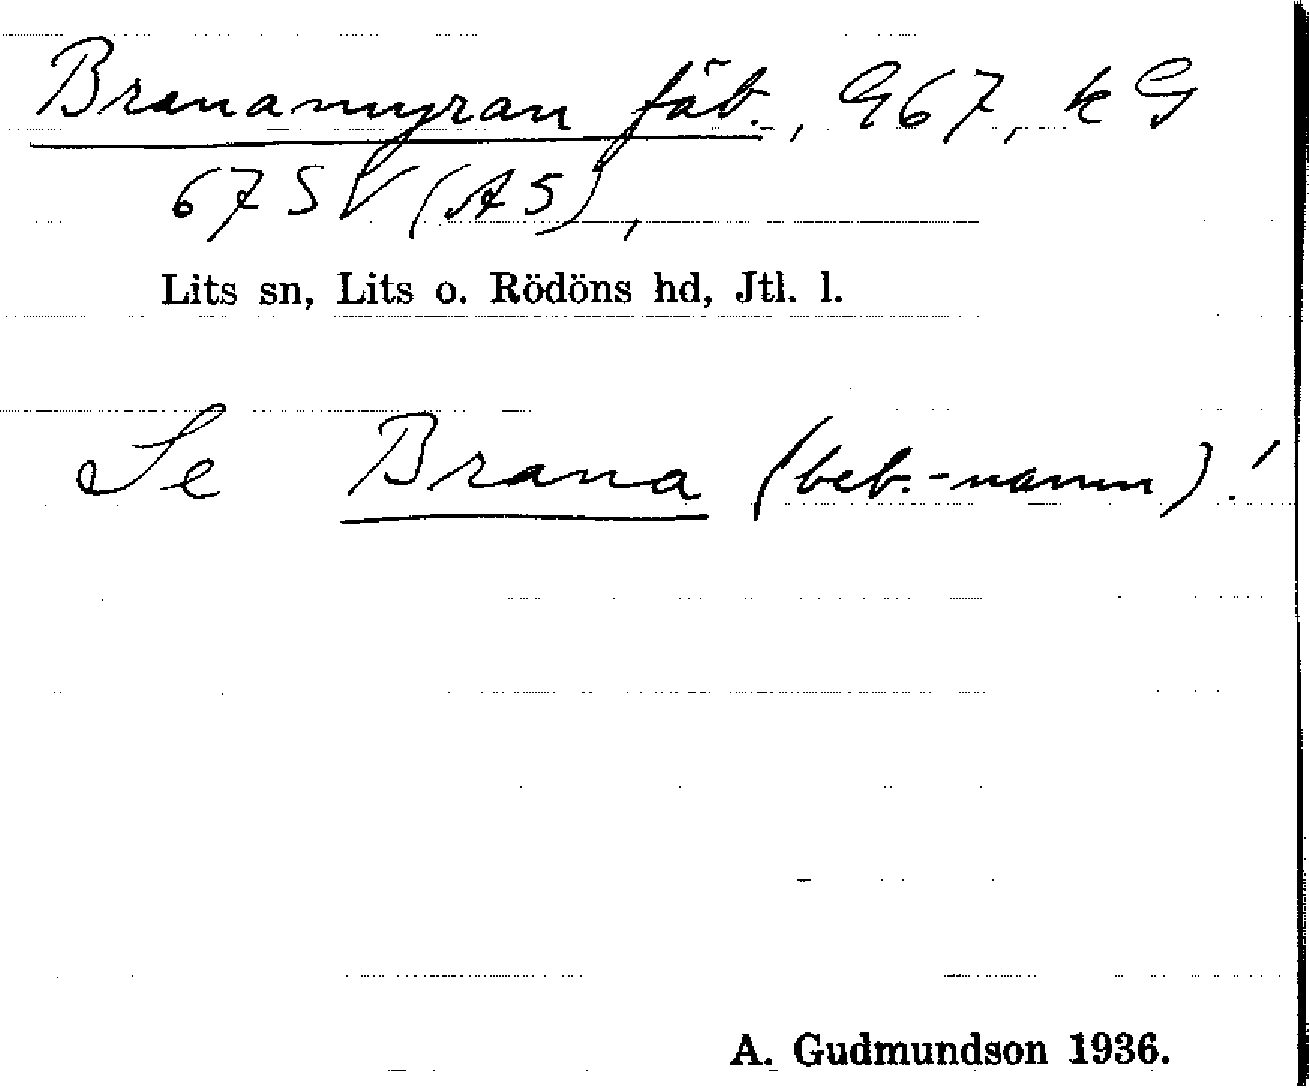 Branamyran fäb., G67, k G
67 SV (A5),
Lits sn, Lits o. Rödöns hd, Jtl. l.
Se Brana (beb.-namn)!
A. Gudmundson 1936.